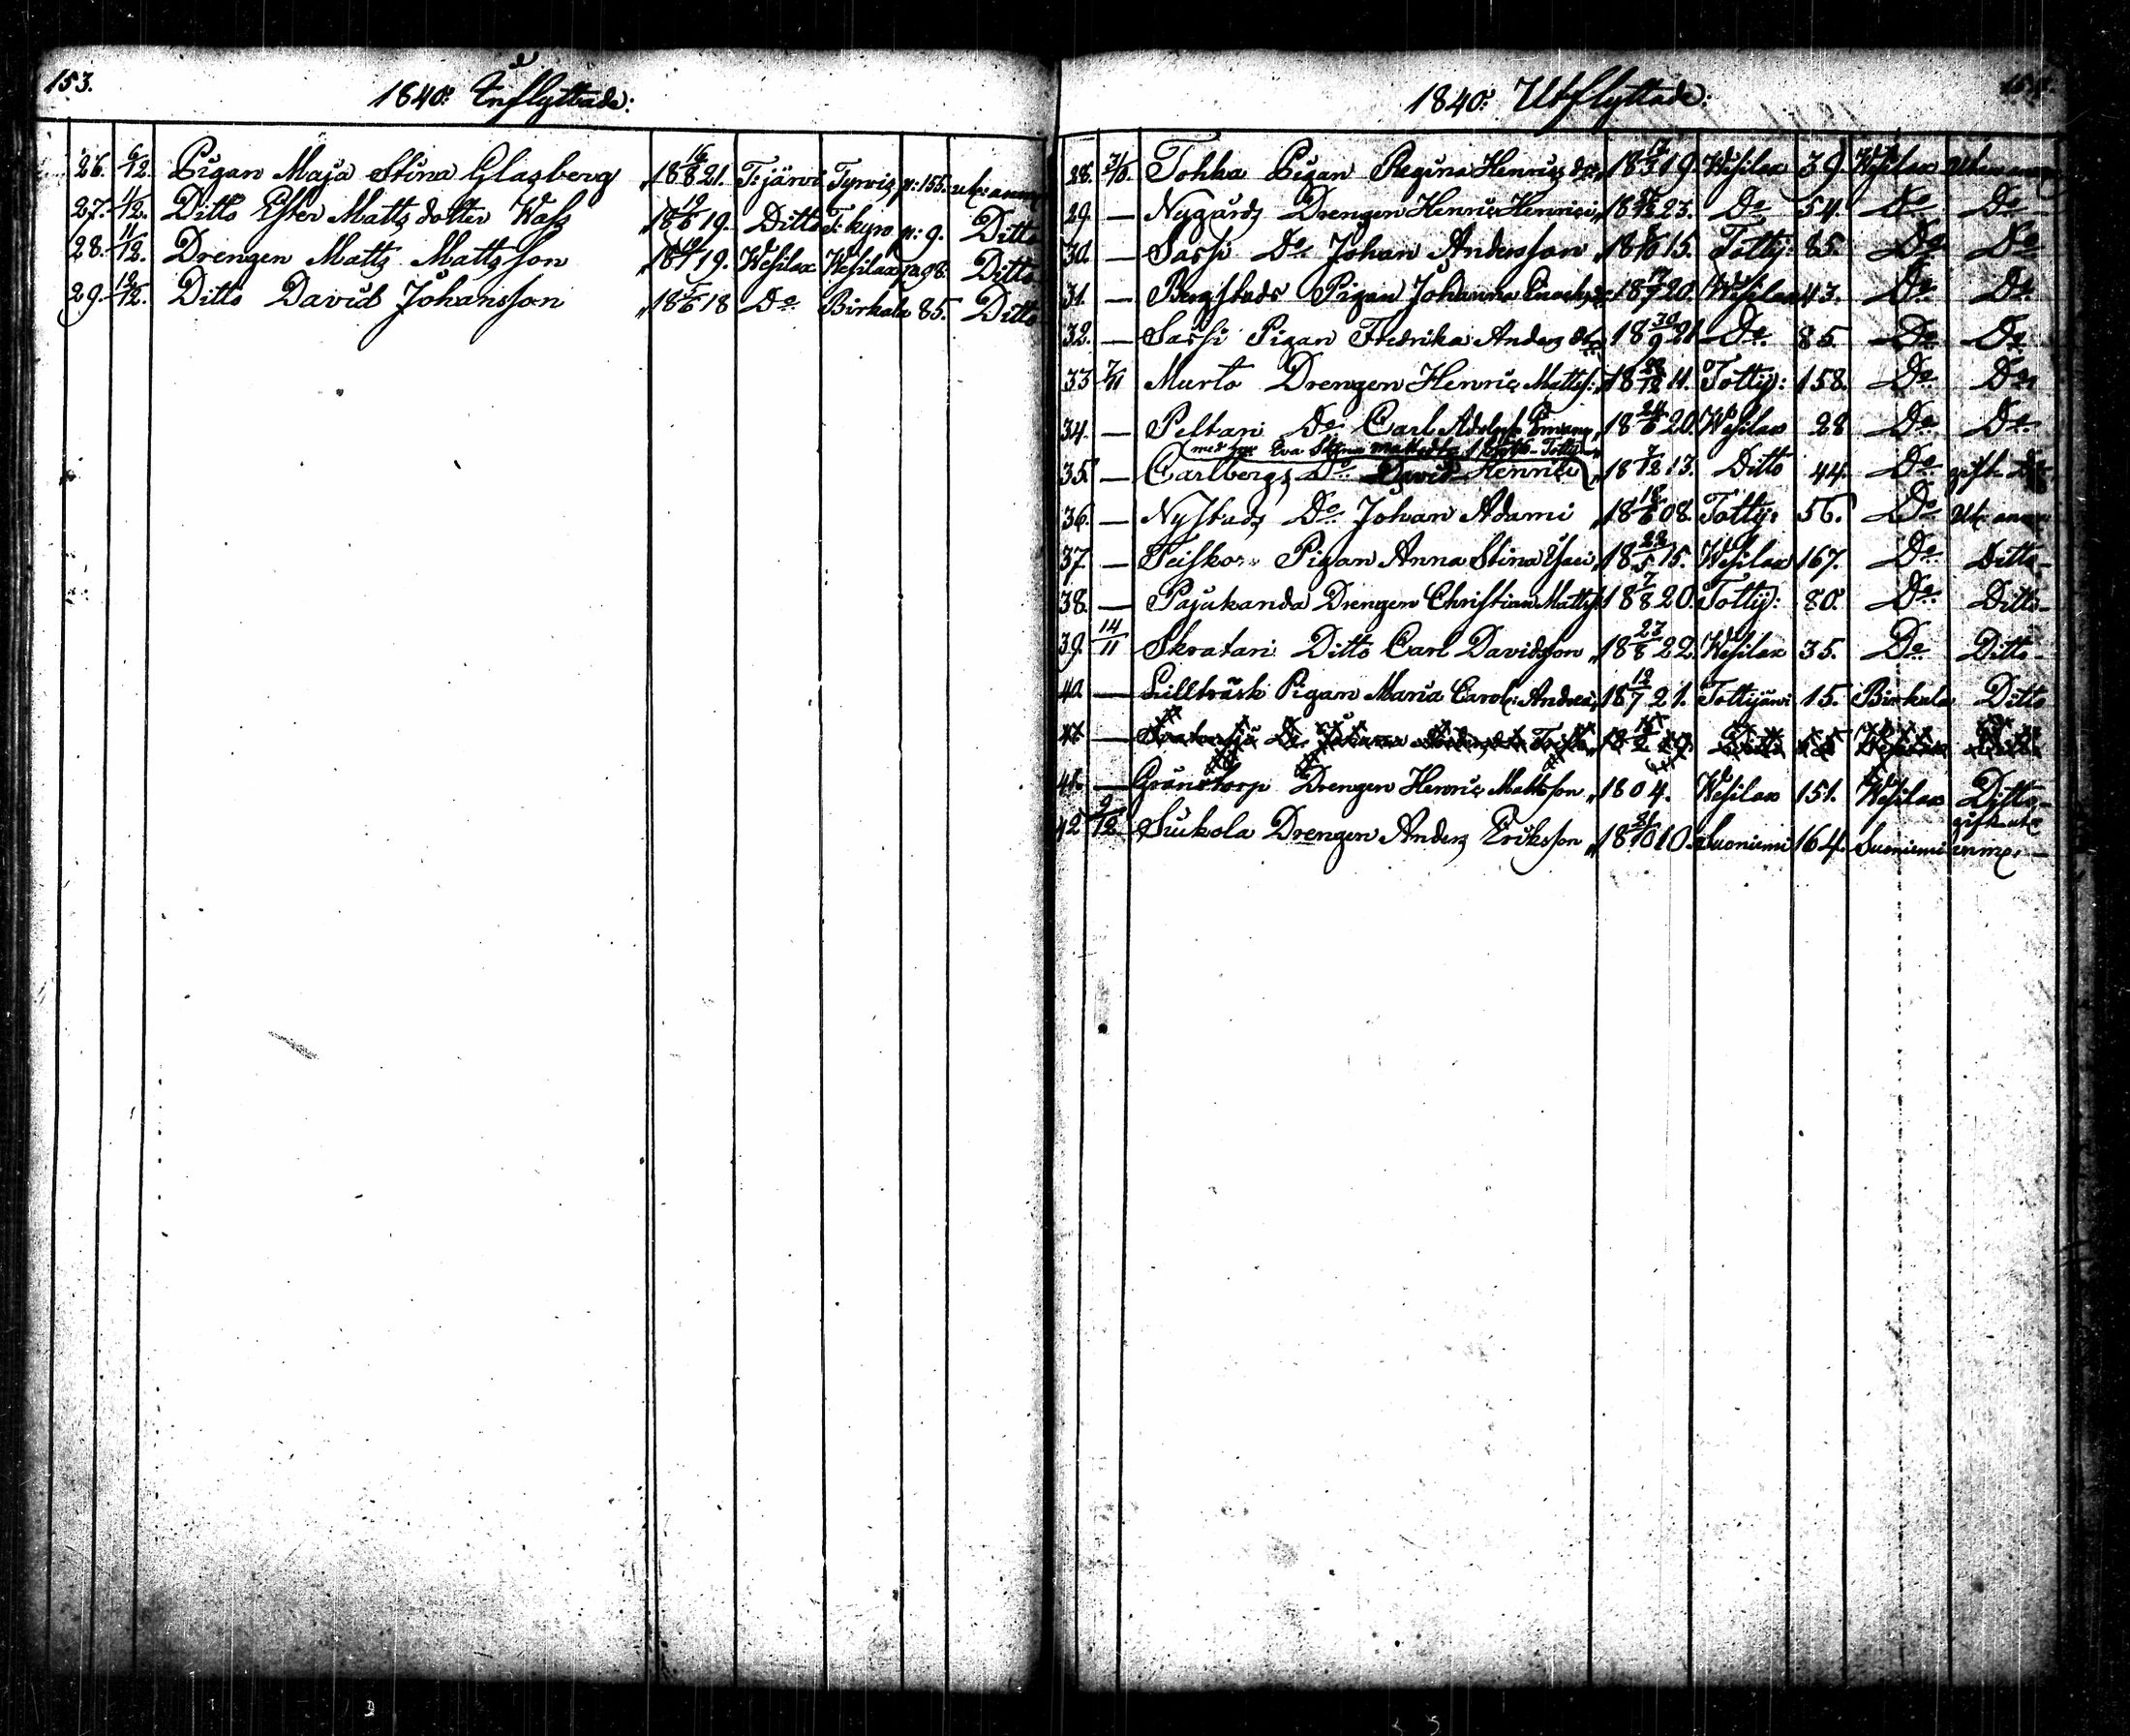 153.
1840: Inflyttade:
26. 6/12. Pigan Maja Stina Glasberg 18 16/8 21. T:järvi Tyrvis p: 155.
27. 11/12. Ditto Ester Mattsdotter Wass 18 19/6 19. Ditto T: kyro p: 9. Ditto
28. 11/12. Drengen Matts Mattsson 19. Wesilax Wesilax pag 98. Ditto
29. 19/12. Ditto David Johansson 18 18 Do Birkala 85. Ditto
1840: Utflyttade:
28. 31/10. Tohka Pigan Regina Henrics dr 18 12/3 19. Wesilax 39. Wesilax Utan anm
29. — Nygårds Drengen Henric Henrici 18 23. Do 54. Do Do
30. — Sassi Do Johan Andersson 18 15. Totty: 85. Do Do
31. — Bergstads Pigan Johanna 18 17/7 20. Wesilax 43. Do Do
32. — Sassi Pigan Fredrika Anders dr 18 30/9 21 Do 85. Do Do
33 7/11 Murto Drengen Henric Matts: 18 11. Tottij: 158. Do Do
34. — Peltari Do Carl Adolph 18 24/6 20. Wesilax 28 Do Do
Eva Stina Totty
35. — Carlbergs Do David Henrici 18 7/12 13. Ditto 44. Do gift
36. — Nystads Do Johan Adami 18 18/6 08. Totty: 56. Do Ut: anm
37. — Teisko Pigan Anna Stina 18 22/5 15. Wesilax 167. Do Ditto
38. — Pajukanda Drengen Christian Matts: 18 7/8 20. Tottij: 80. Do Ditto
39. 14/11 Skratari Ditto Carl Davidsson 18 23/8 22. Wesilax 35. Do Ditto
40. — Lillträsk Pigan Maria Carol: Andreæ 18 12/7 21. Tottijärvi 15. Birkala Ditto
41. — Gränstorp Drengen Henric Mattsson 1804. Wesilax 151. Wesilax Ditto
42 9/12 Sukola Drengen Anders Eriksson 18 21/10 10. Suoniemi 164. Suoniemi gift utr anm: